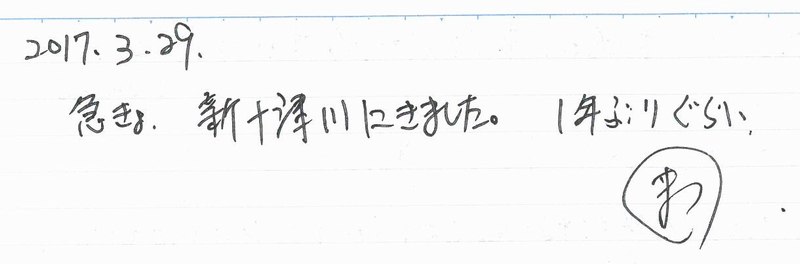 2017.3.29.
急きょ、新十津川にきました。 1年ぶりぐらい、